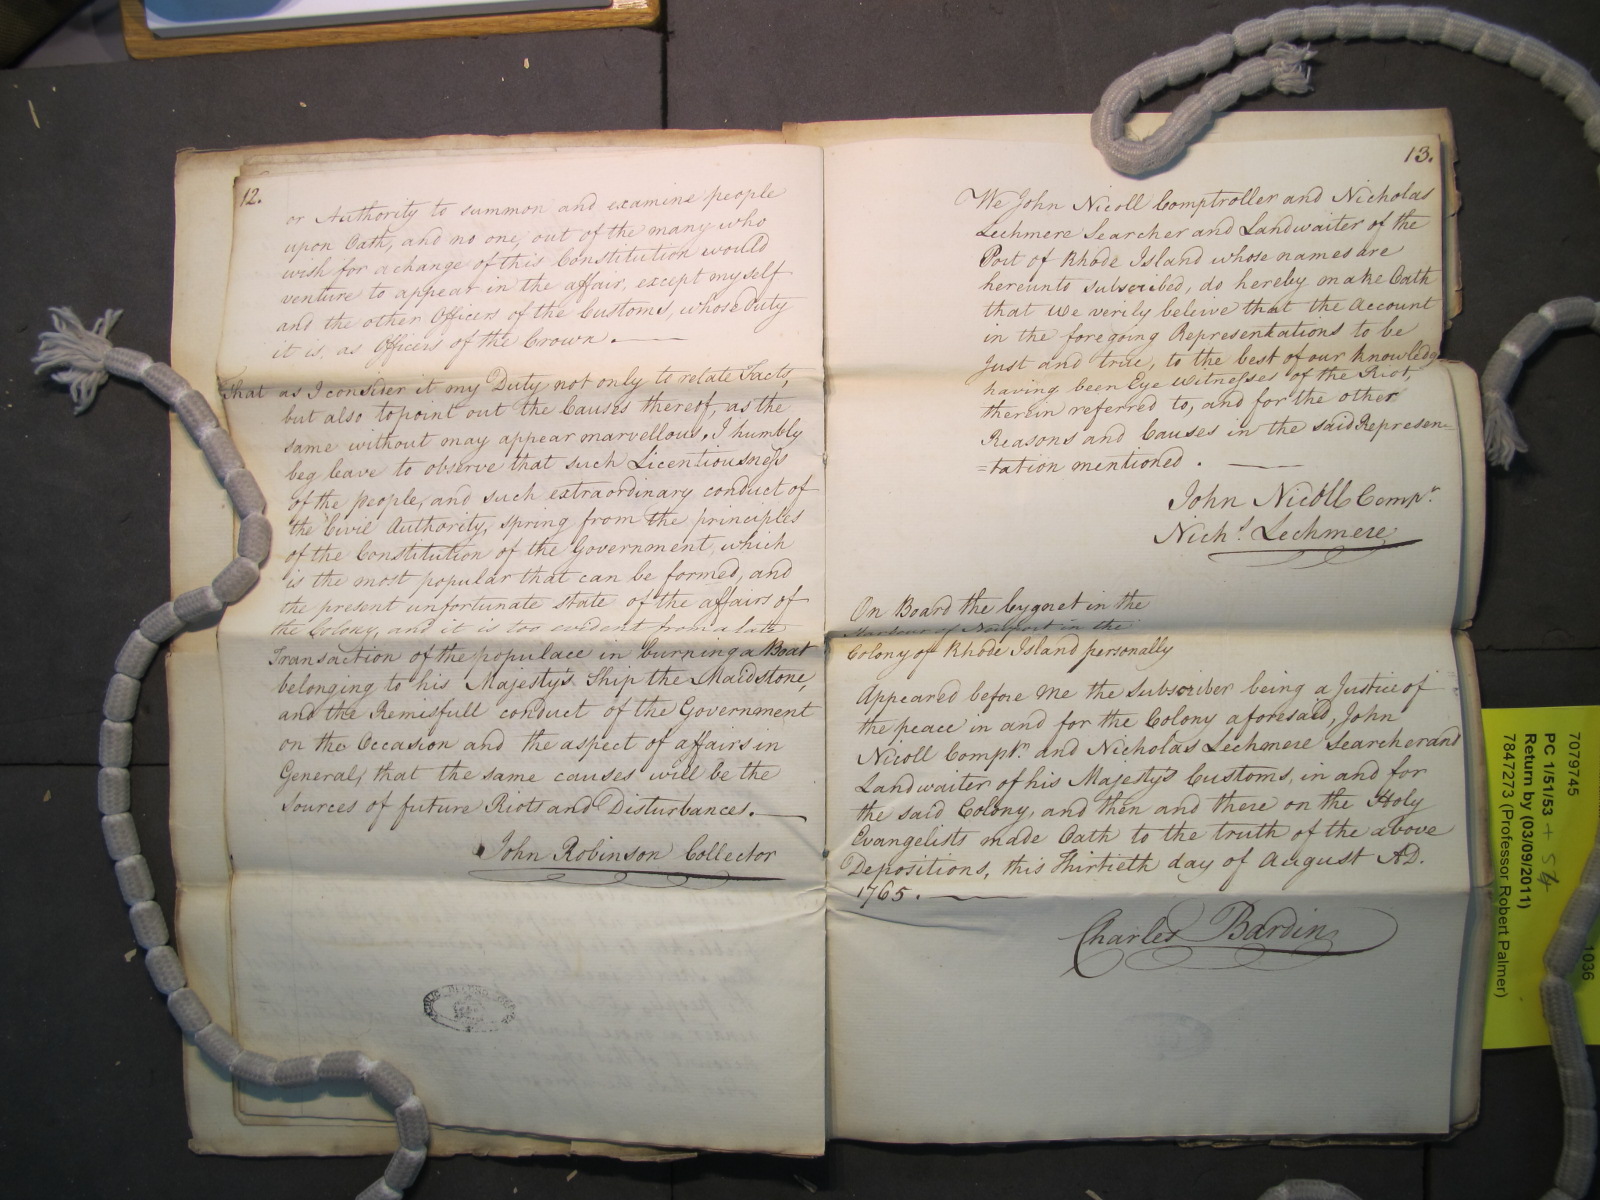 12.
or Authority to summon and examine people
upon Oath, and no one, out of the many who
wish for a change of this Constitution would
venture to appear in the affair, except myself
and the other Officers of the Customs, whose Duty
it is, as Officers of the Crown.
That as I consider it my Duty not only to relate Facts,
but also to point out the Causes thereof, as the
same without may appear marvellous, I humbly
beg leave to observe that such Licentiousness
of the people, and such extraordinary conduct of
the Civil Authority, spring from the principles
of the Constitution of the Government, which
is the most popular that can be formed, and
the present unfortunate state of the affairs of
the Colony, and it is too evident from a late
Transaction of the populace in burning a Boat
belonging to his Majesty's Ship the Maidstone,
and the Remissfull conduct of the Government
on the Occasion and the aspect of affairs in
General, that the same causes will be the
Sources of future Riots and Disturbances.
John Robinson Collector
13.
We John Nicoll Comptroller and Nicholas
Lechmere Searcher and Landwaiter of the
Port of Rhode Island whose names are
hereunto subscribed, do hereby make Oath
that we verily beleive that the Account
in the foregoing Representations to be
Just and true, to the best of our knowledge
having been Eye Witnesses of the Riot,
therein referred to, and for the other
Reasons and Causes in the said Represen=
=tation mentioned.
John Nicoll Compr.
Nichs. Lechmere
On Board the Cygnet in the
Harbour of Newport in the
Colony of Rhode Island personally
Appeared before me the Subscriber being a Justice of
the peace in and for the Colony aforesaid, John
Nicoll Comptr. and Nicholas Lechmere Searcher and
Landwaiter of his Majesty's Customs, in and for
the said Colony, and then and there on the Holy
Evangelists made Oath to the truth of the above
Depositions, this Thirtieth day of August AD.
1765.
Charles Bardin
7079745
PC 1/51/53 + 54
Return by (03/09/2011)
7847273 (Professor Robert Palmer)
1036